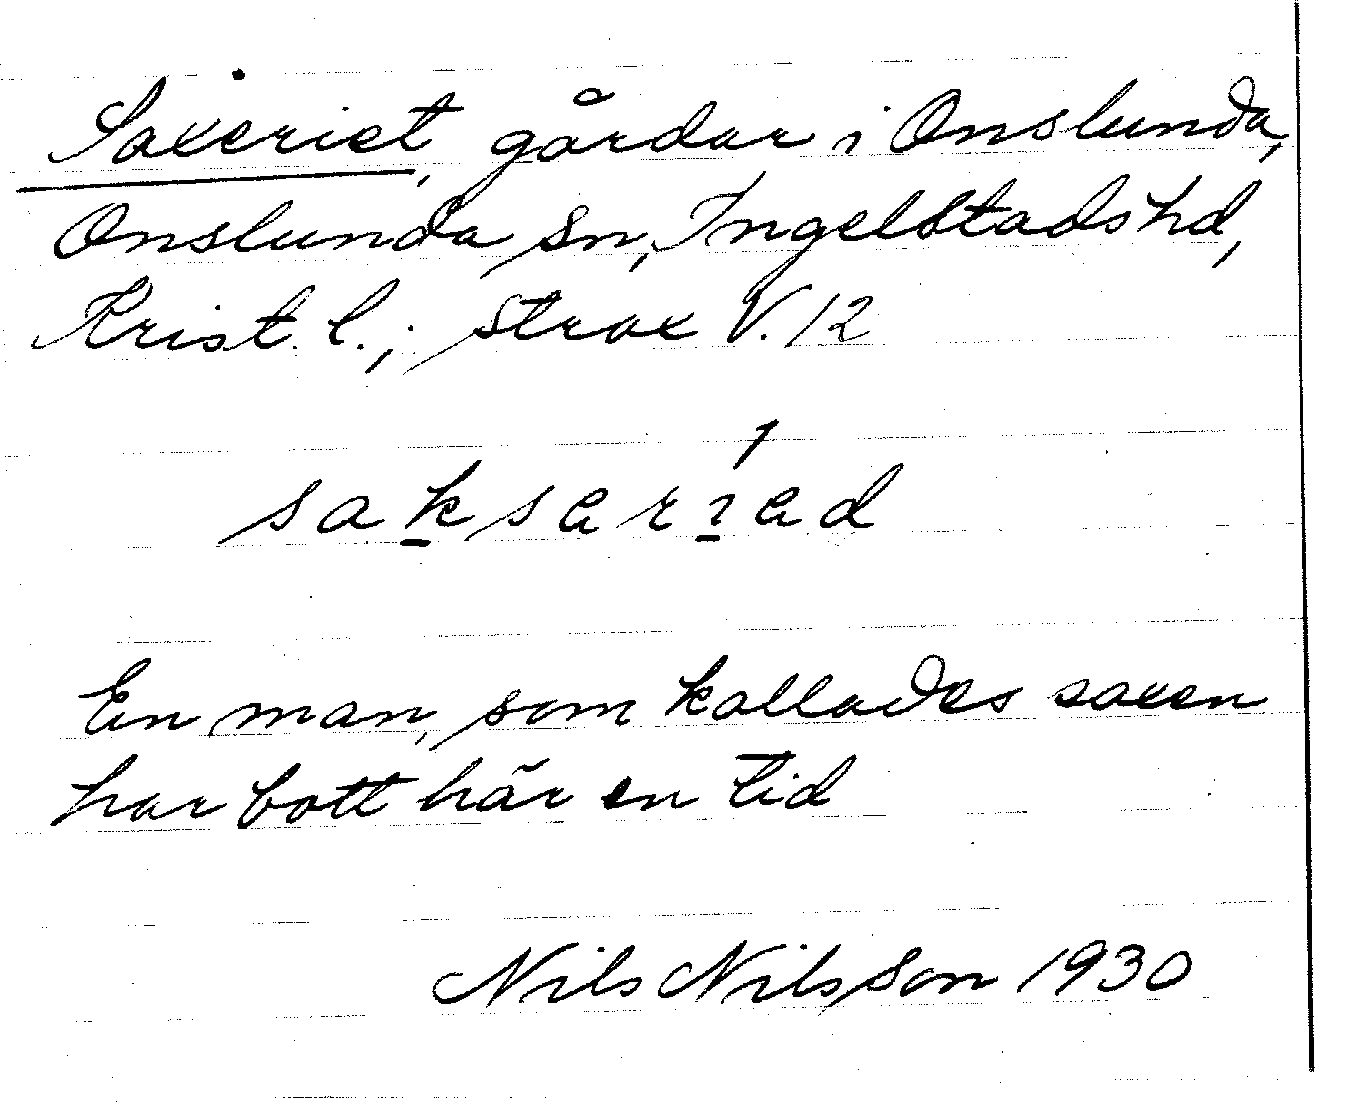 Saxeriet, gårdar i Onslunda,
Onslunda sn, Ingelstads hd,
Krist. l.; strax V. 12
saksarıad
En man, som kallades saxen
har bott här en tid
Nils Nilsson 1930